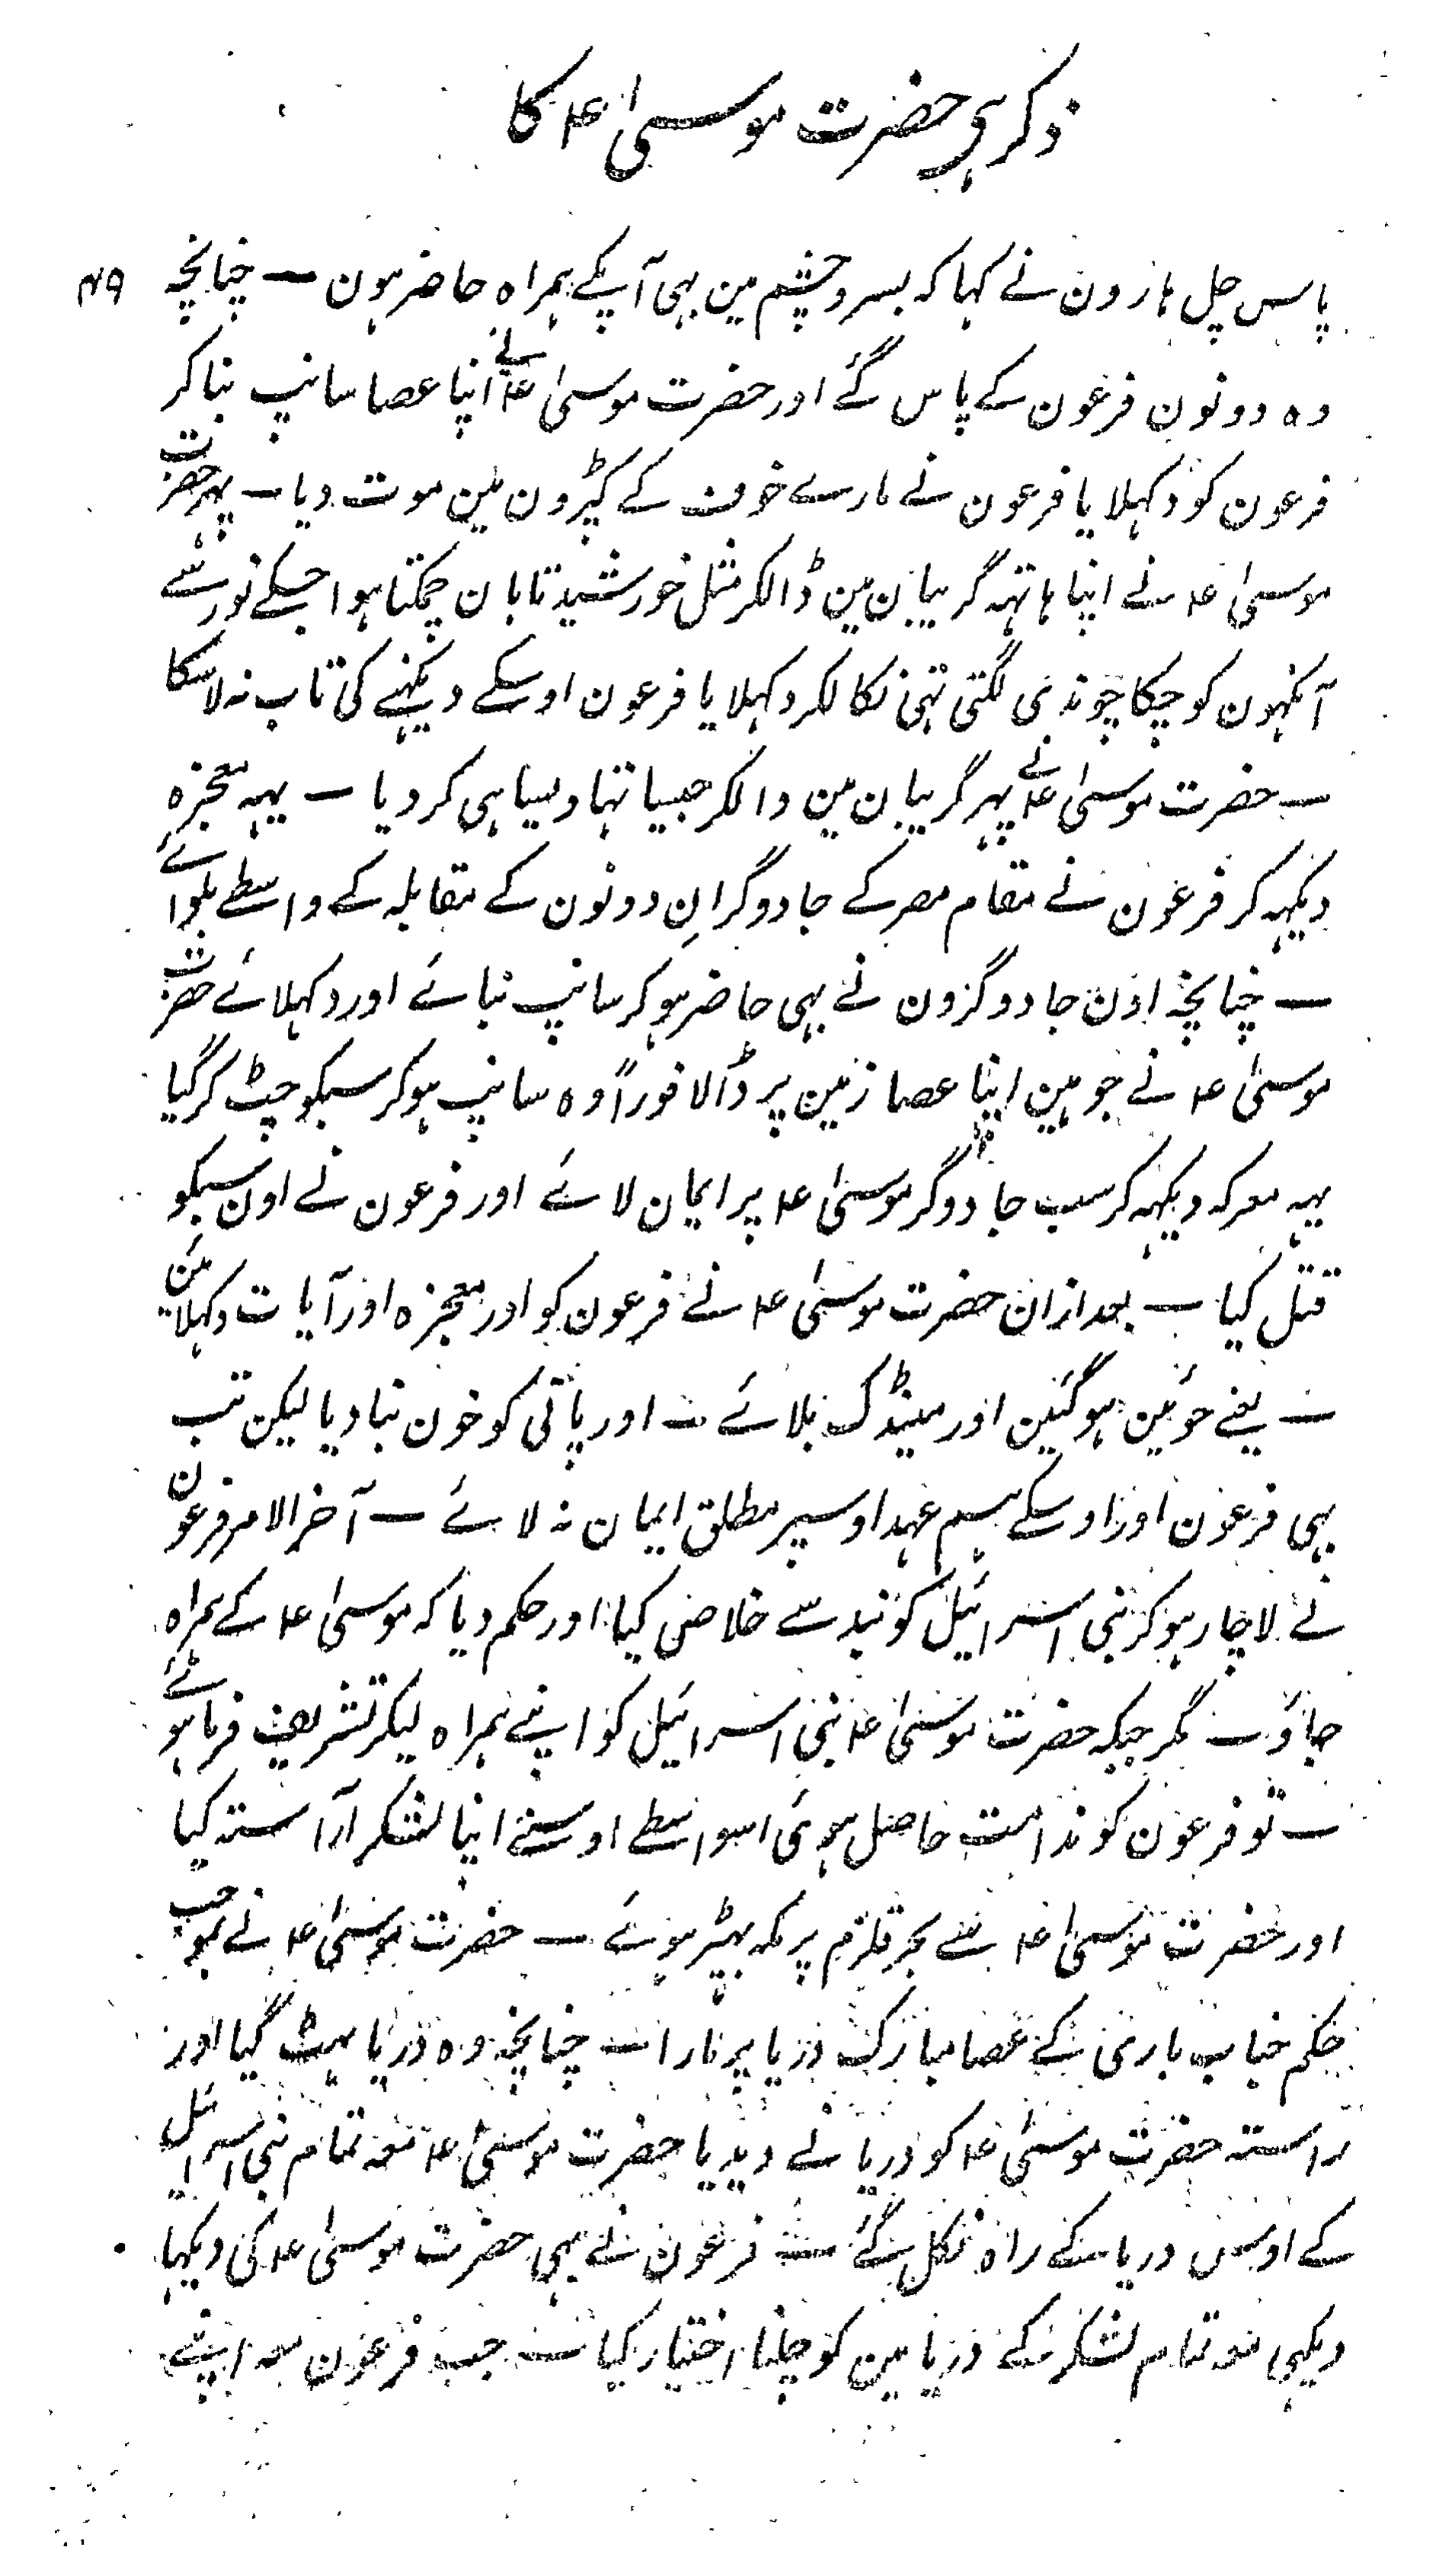 ذکر ہی حضرت موسیٰ ؑ کا
۴۹
پاس چل ہارون نے کہا کہ بسر و چشم مین بہی آپکے ہمراہ حاضر ہون – چنانچہ
وہ دونون فرعون کے پاس گئے اور حضرت موسیٰ ؑ نے اپنا عصا سانپ بنا کر
فرعون کو دکہلایا فرعون نے مارے خوف کے کپڑون مین موت دیا – پہر حضرت
موسیٰ ؑ نے اپنا ہاتہہ گریبان مین ڈالکر مثل خورشید تابان چمکتا ہوا جسکے نور سے
آنکہون کو چکا چوندی لگتی تہی نکالکر دکہلایا فرعون اوسکے دیکہنے کی تاب نہ لا سکا
– حضرت موسیٰ ؑ نے پہر گریبان مین دالکر جیسا تہا ویسا ہی کر دیا – یہہ معجزہ
دیکہہ کر فرعون نے مقام مصر کے جادوگرانِ دونون کے مقابلہ کے واسطے بلوائے
– چنانچہ اون جادوگرون نے بہی حاضر ہو کر سانپ بنائے اور دکہلائے حضرت
موسیٰ ؑ نے جوہین اپنا عصا زمین پر ڈالا فوراً وہ سانپ ہو کر سبکو چٹ کر گیا
یہہ معرکہ دیکہہ کر سب جادوگر موسیٰ ؑ پر ایمان لائے اور فرعون نے اون سبکو
قتل کیا – بعد ازان حضرت موسیٰ ؑ نے فرعون کو اور معجزہ اور آیات دکہلائین
– یعنے جوئین ہو گئین اور مینڈک بلائے – اور پانی کو خون بنا دیا لیکن تب
بہی فرعون اور اوسکے ہم عہد اوسپر مطلق ایمان نہ لائے – آخر الامر فرعون
نے لاچار ہو کر بنی اسرائیل کو بند سے خلاصی کیا اور حکم دیا کہ موسیٰ ؑ کے ہمراہ
جاؤ – مگر جبکہ حضرت موسیٰ ؑ بنی اسرائیل کو اپنے ہمراہ لیکر تشریف فرما ہوئے
– تو فرعون کو ندامت حاصل ہوئی اسواسطے اوسنے اپنا لشکر آراستہ کیا
اور حضرت موسیٰ ؑ سے بحر قلزم پر مکہ بہیڑ ہوئے – حضرت موسیٰ ؑ نے بموجب
حکم جناب باری کے عصا مبارک دریا پر مارا – چنانچہ وہ دریا پہٹ گیا اور
راستہ حضرت موسیٰ ؑ کو دریا نے دیدیا حضرت موسیٰ ؑ معہ تمام بنی اسرائیل
کے اوس دریا کے راہ نکل گئے – فرعون نے بہی حضرت موسیٰ ؑ کی دیکہا
دیکہی معہ تمام لشکر کے دریا مین کو چلنا اختیار کیا – جب فرعون معہ اپنے